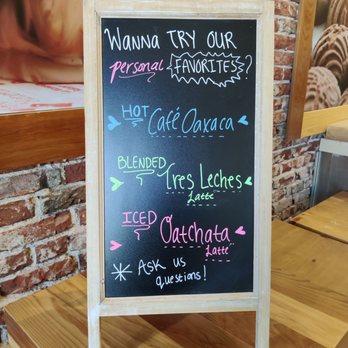 WANNA TRY OUR
personal FAVORITES?
HOT Café Oaxaca
BLENDED
Tres Leches
Latte
ICED
Oatchata
Latte
ASK US
questions!